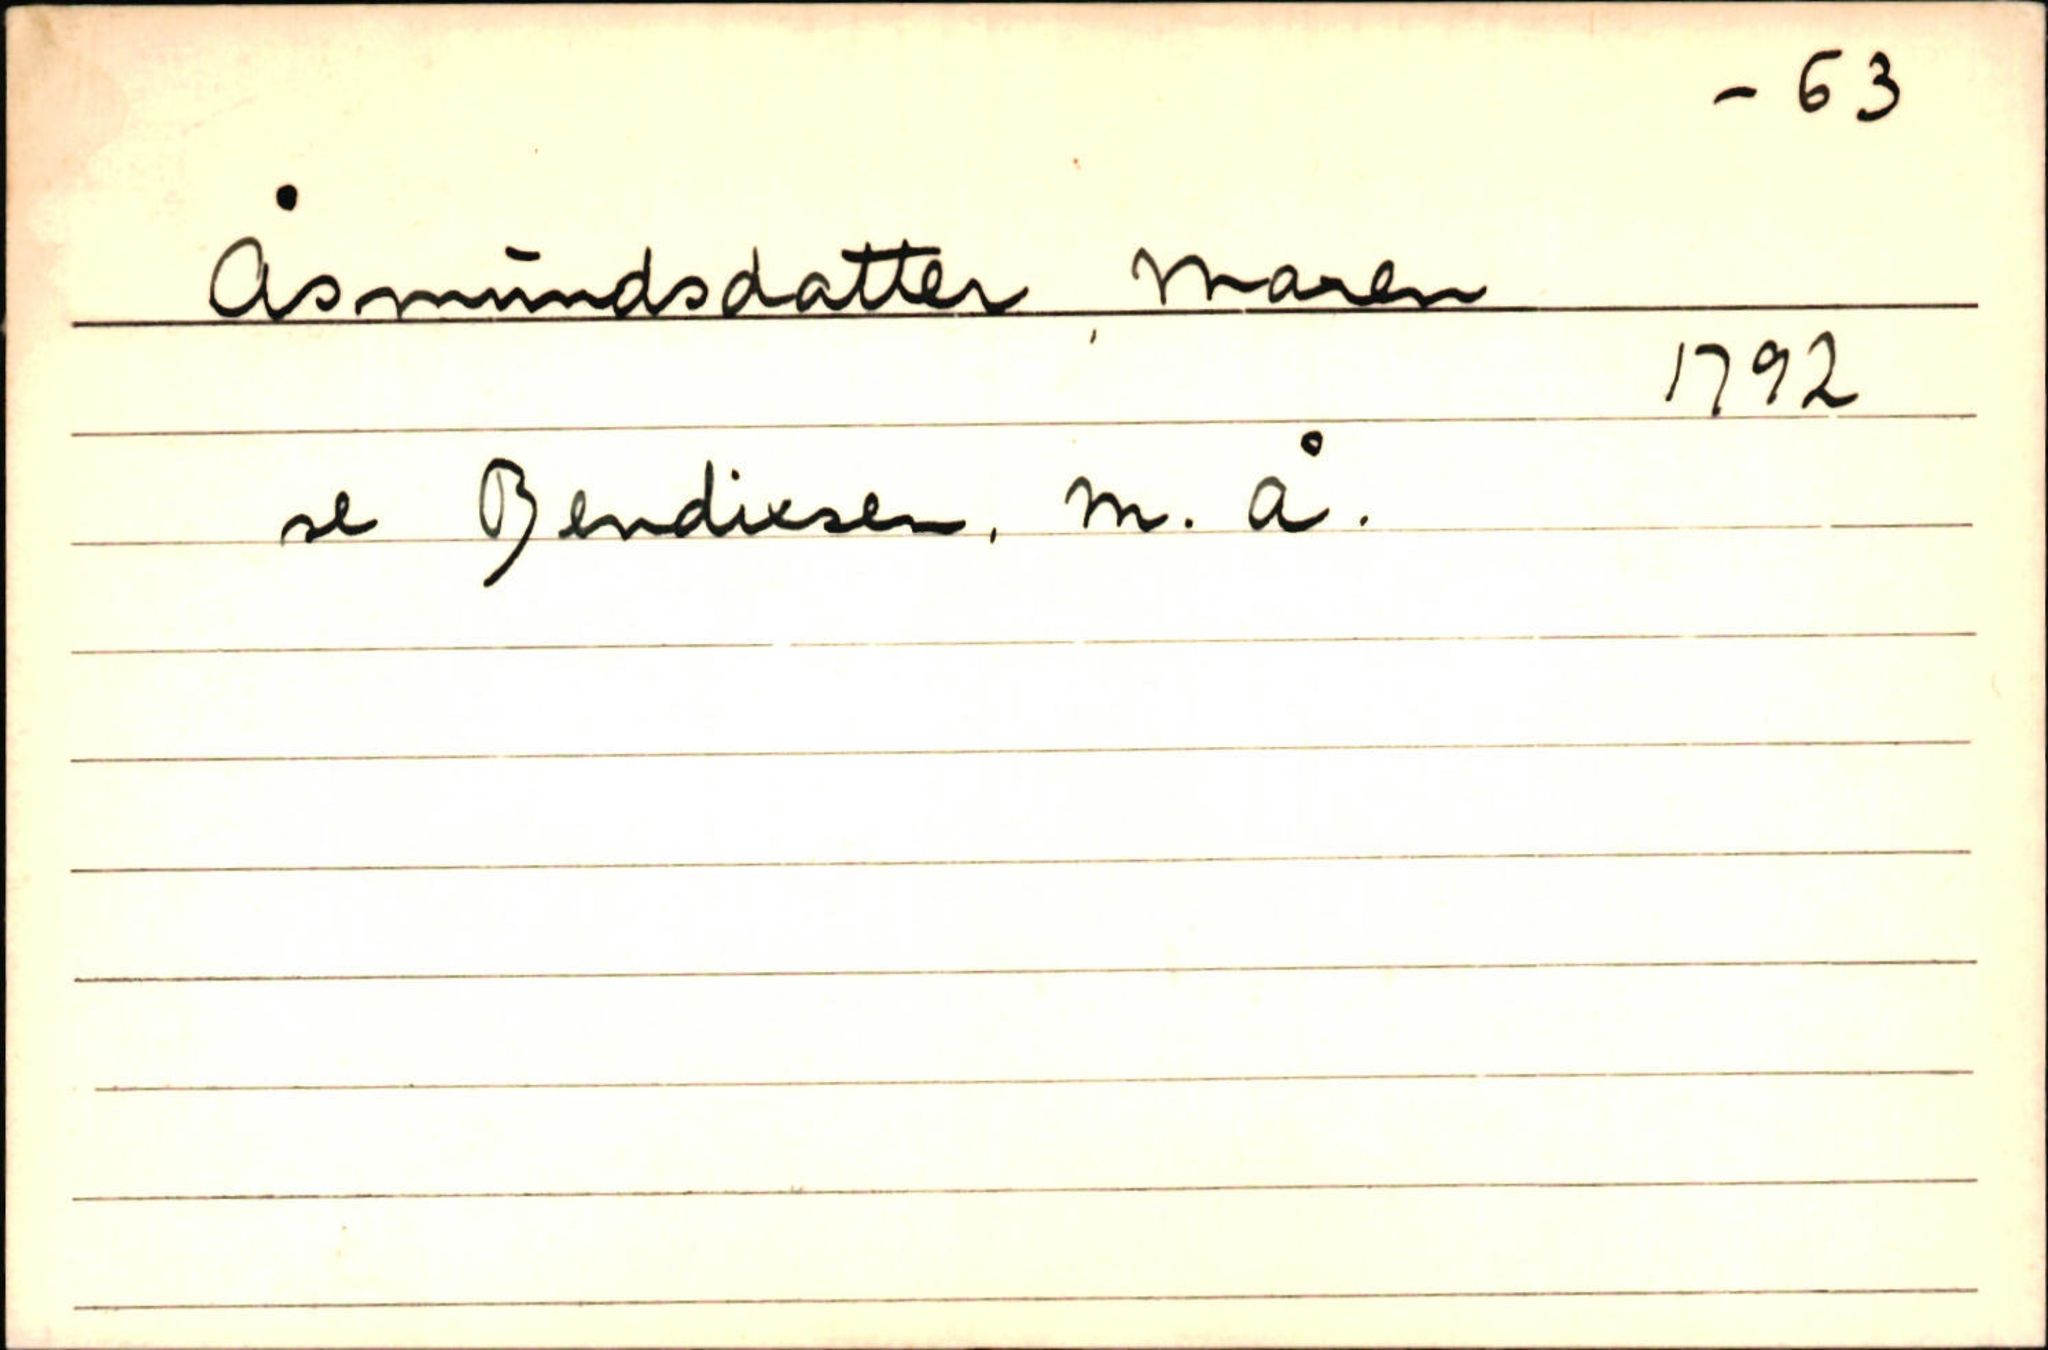 - 63
Åsmundsdatter, Maren
1792
se Bendixsen, M. Å.